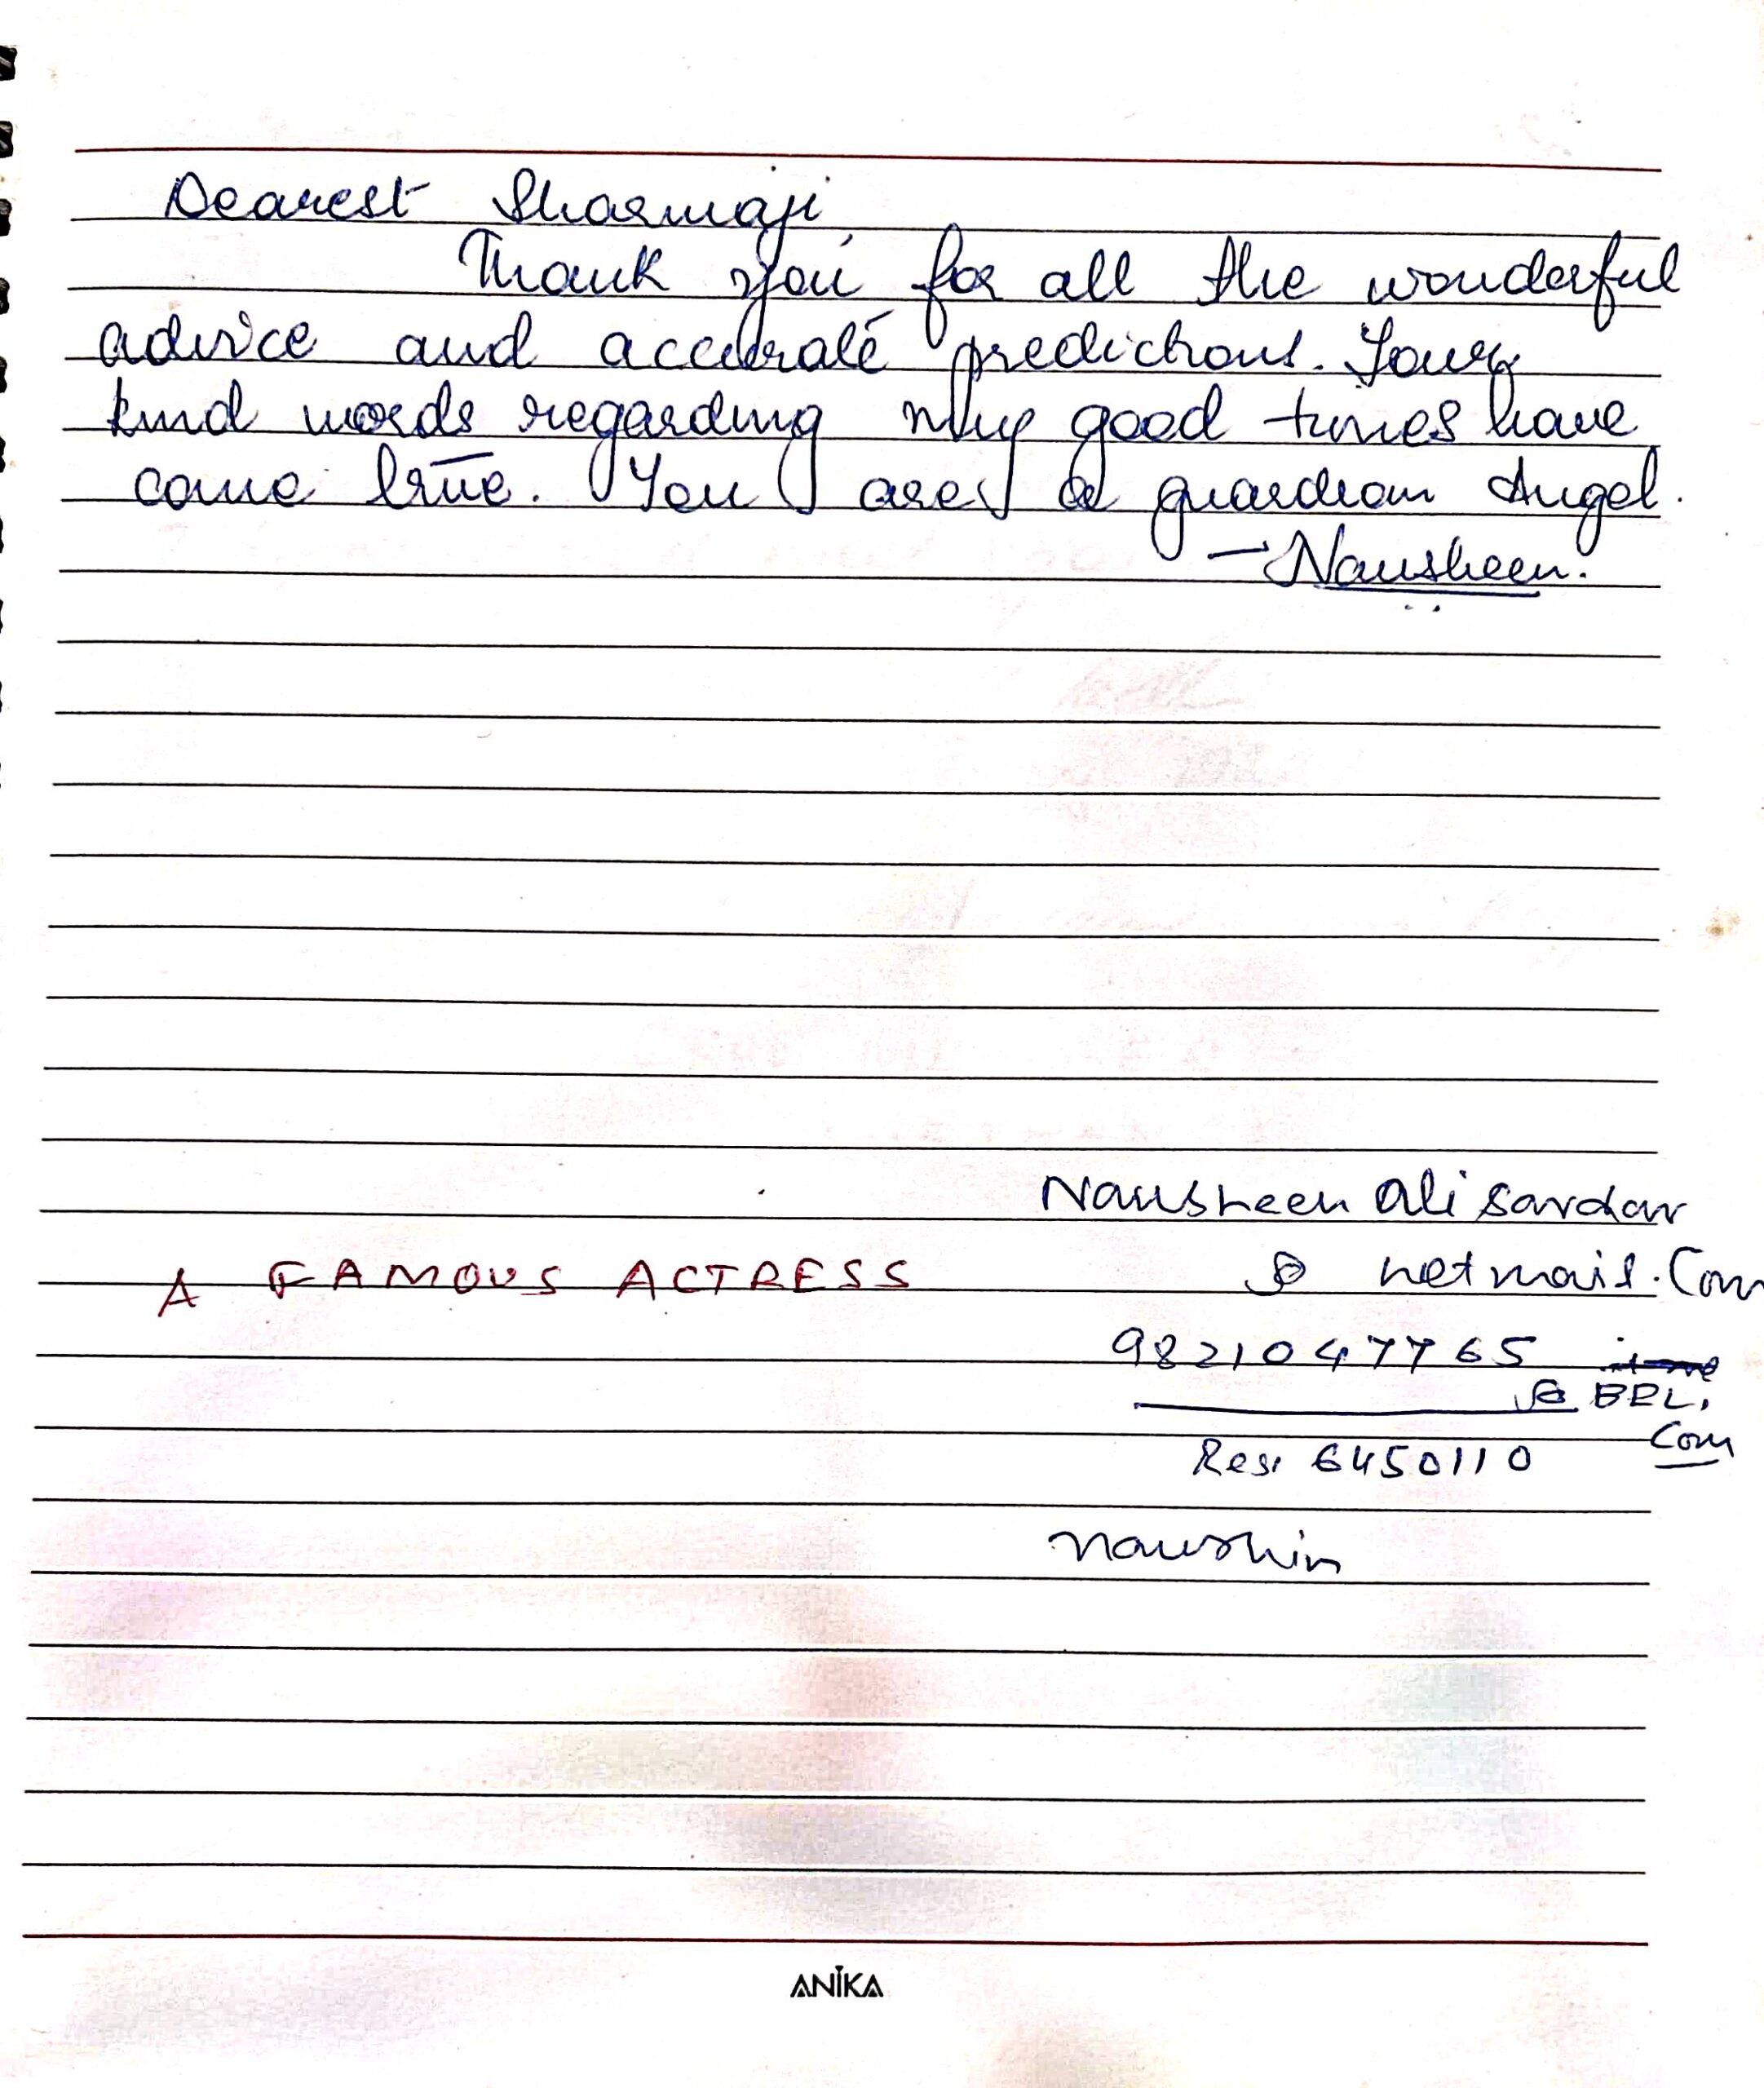 Dearest Sharmaji
Thank you for all the wonderful
advice and accurate predictions. Your
kind words regarding my good times have
come true. You are a guardian Angel.
— Nausheen.
Nausheen ali sardar
A FAMOUS ACTRESS @ netmail.com
9821047765
@ BPL.
Com
Res: 6450110
naushin
ANIKA